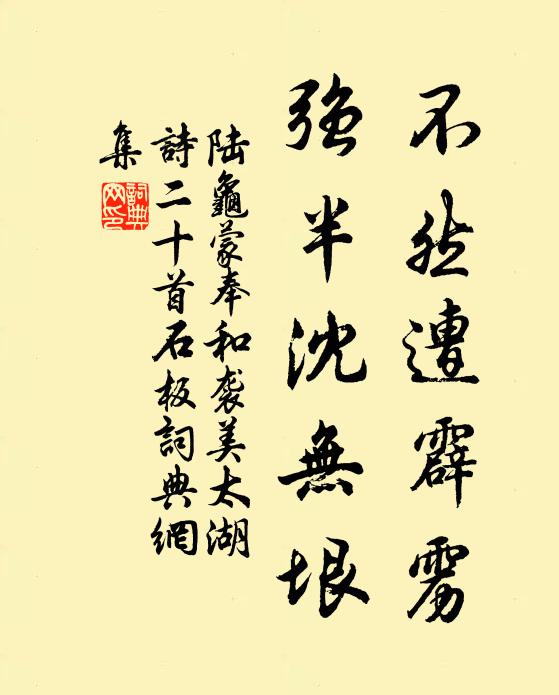 不然遭霹雳
強半沈無垠
陸龜蒙奉和袭美太湖
詩二十首石板詞典網
集
詞典网印